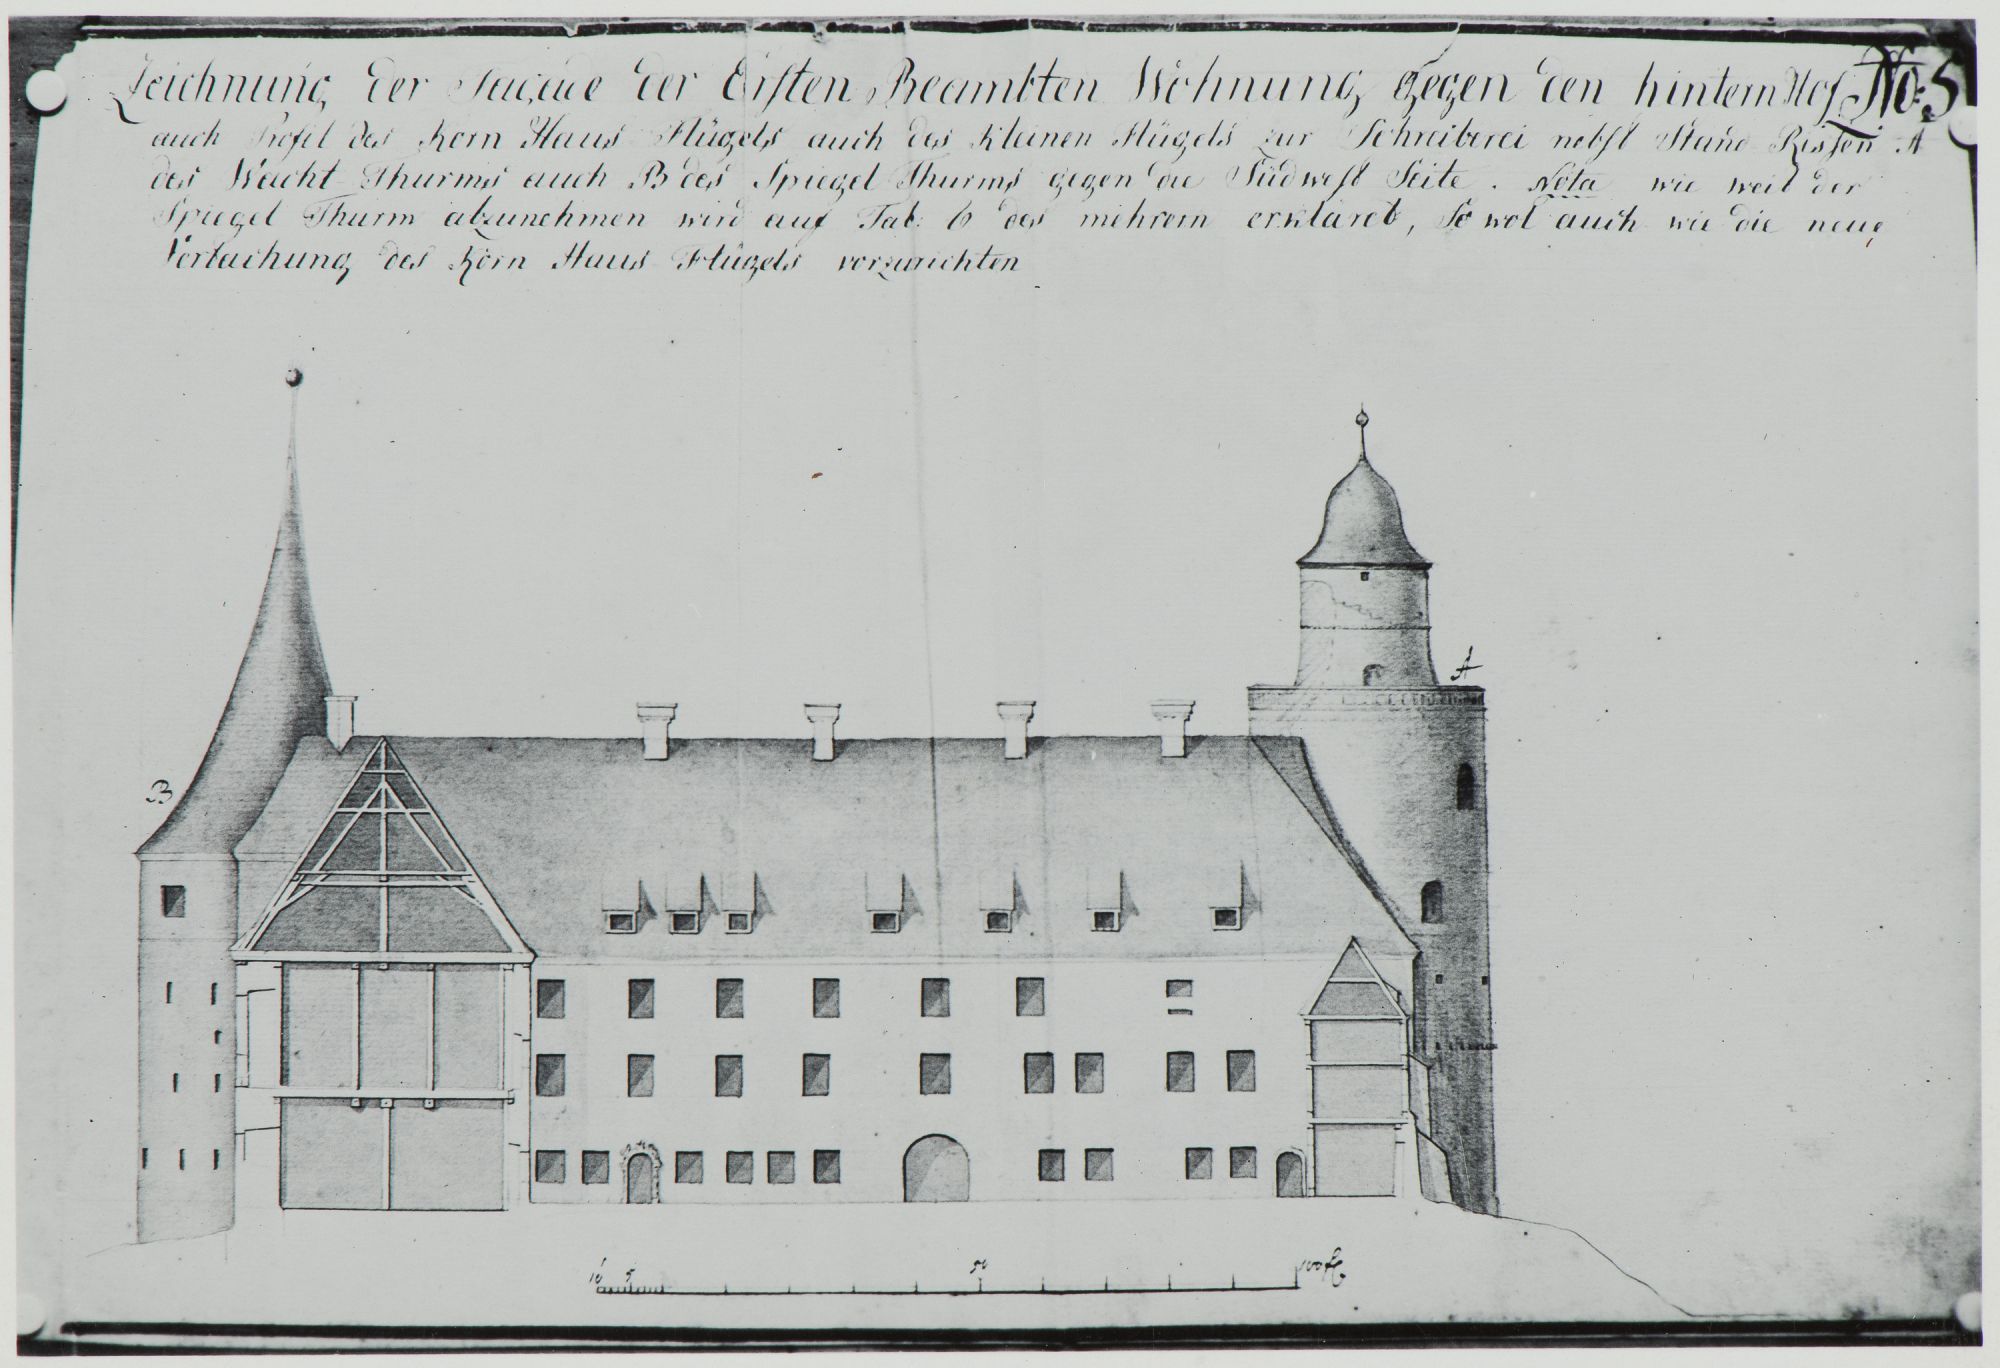 Zeichnung der Façade der Ersten Beambten Wohnung gegen den hintern Hof No: 5
auch Profil des Korn Haus Flügels auch des Kleinen Flügels zur Schreiberei nebst Stand Rissen A
des Wacht Thurms auch B des Spiegel Thurms gegen die Südwest Seite. Nota wie weit der
Spiegel Thurm abzunehmen wird auf Tab: 6 des mehrern erkläret, So wol auch wie die neue
Vertachung des Korn Haus Flügels vorzurichten
A
B
10 5 50 100 ft